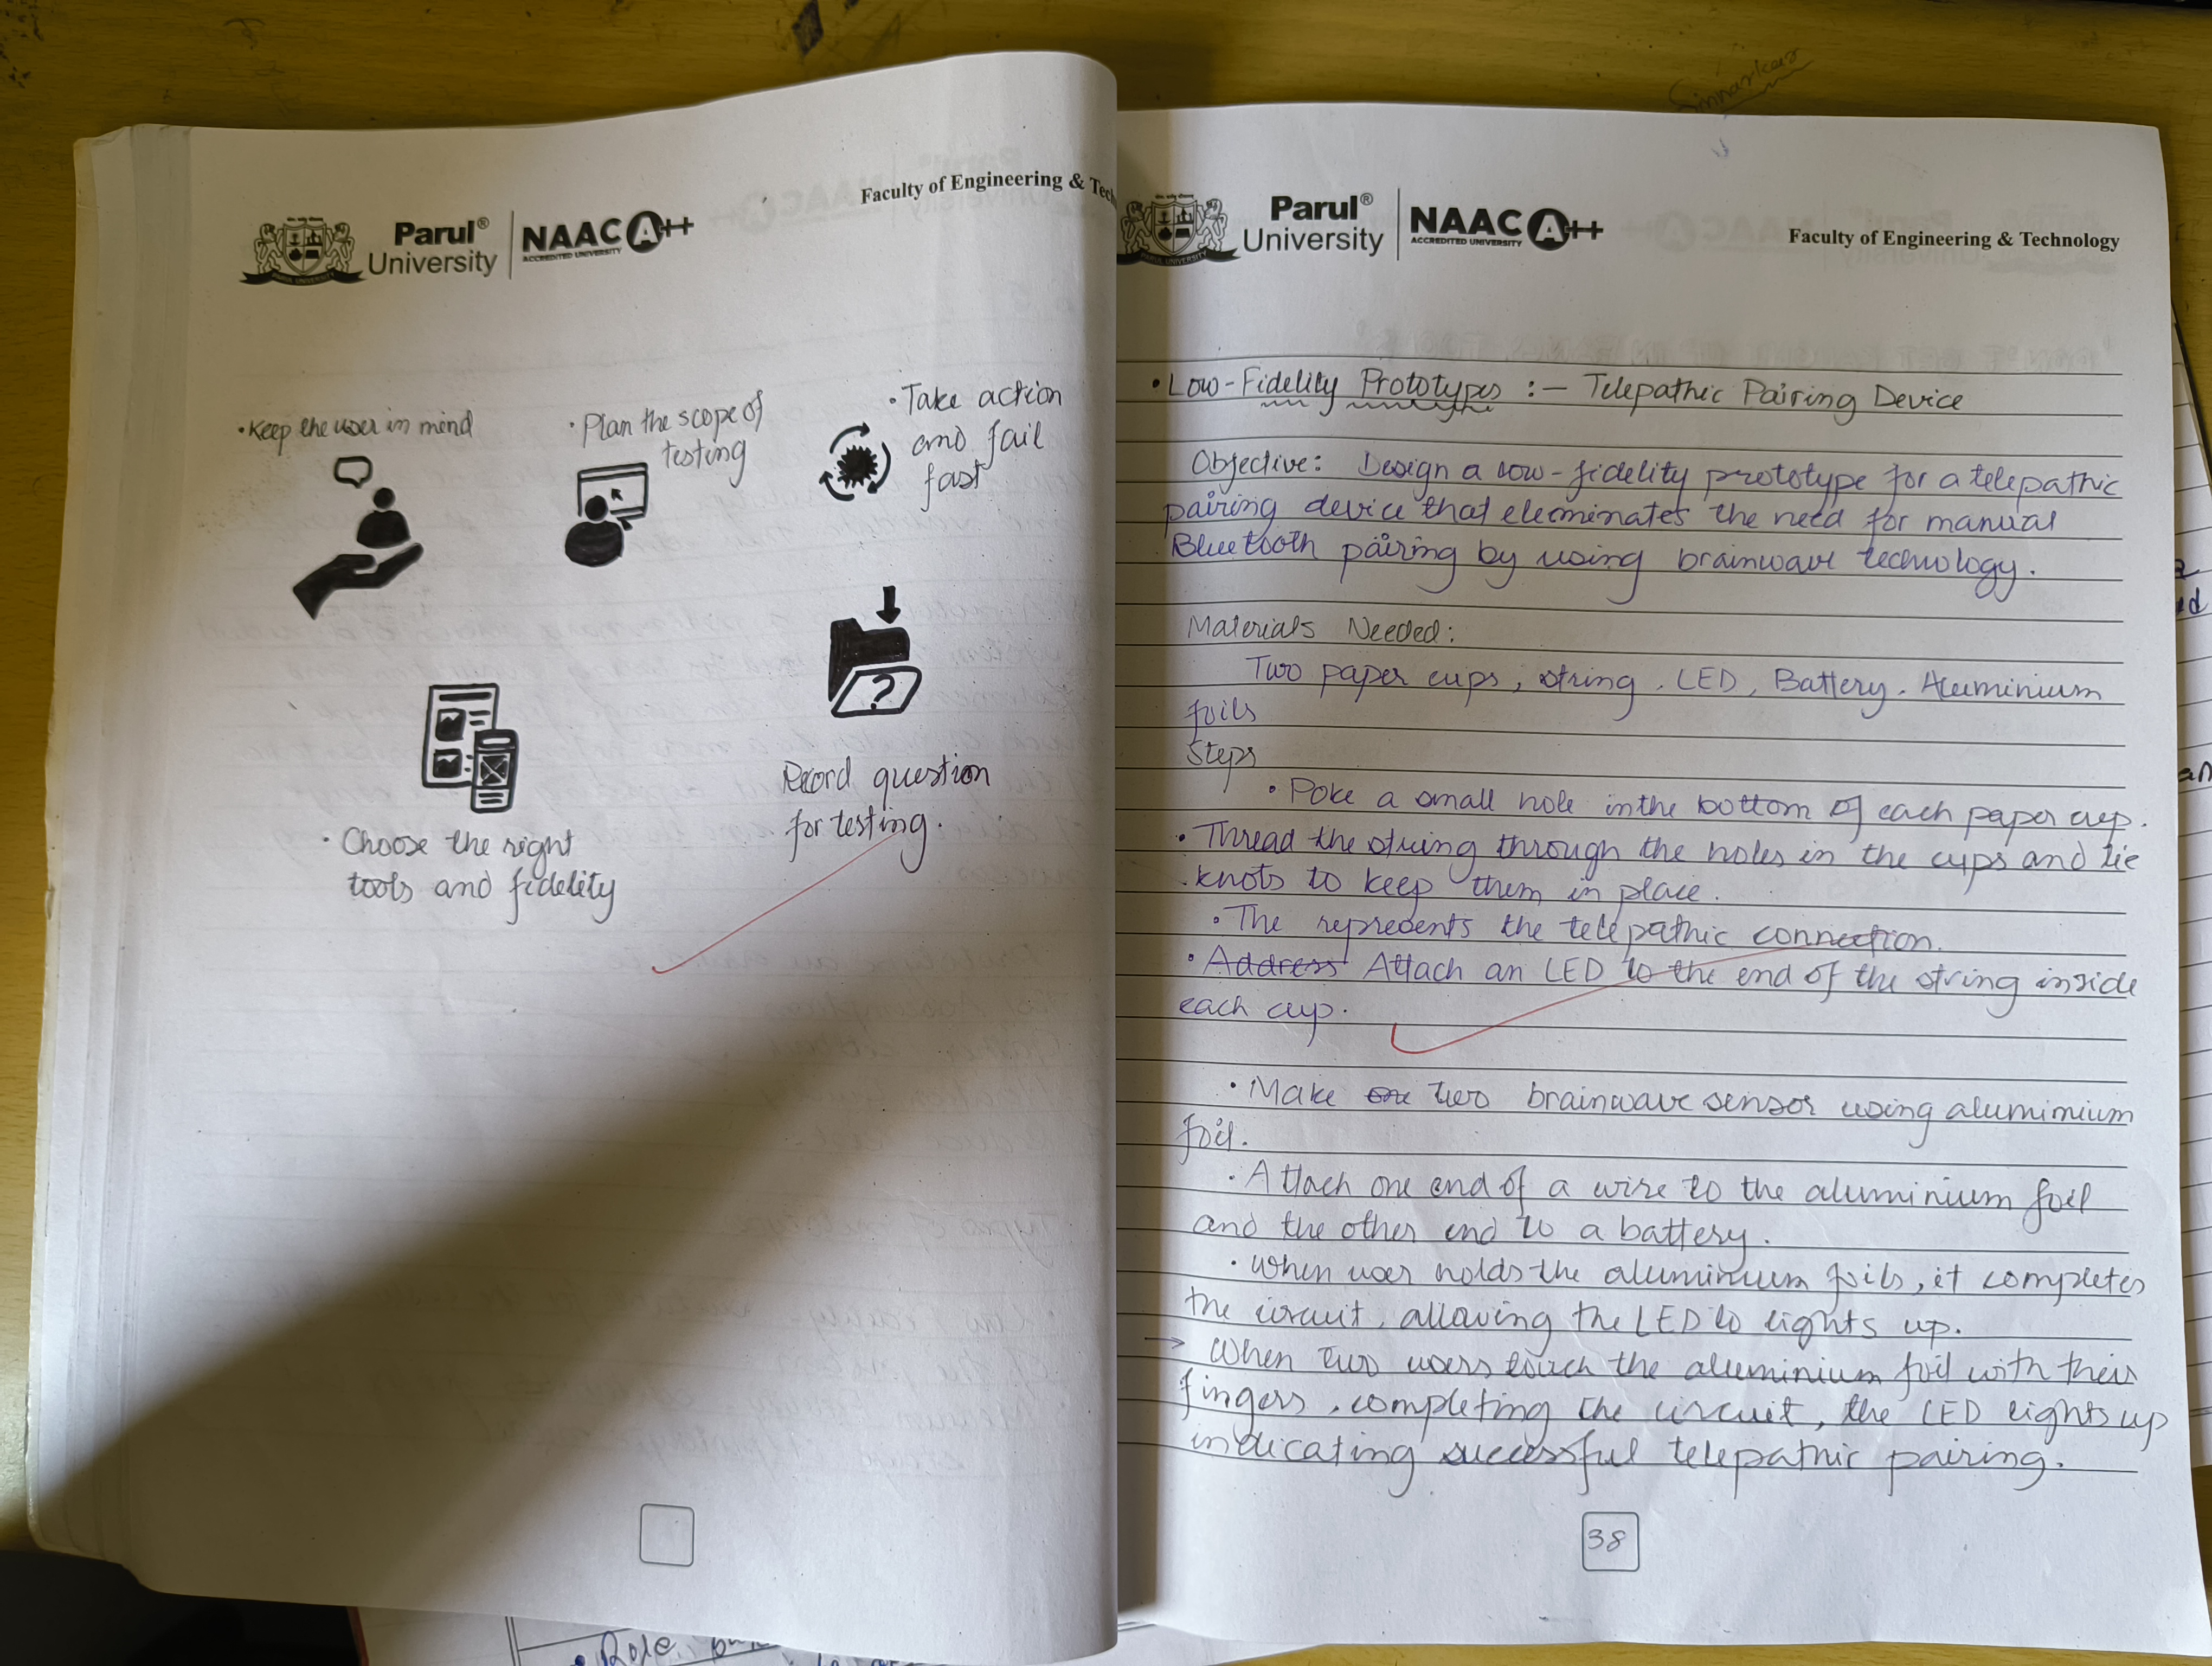 Parul®
University
NAAC A++
ACCREDITED UNIVERSITY
Faculty of Engineering & Tech
• Keep the user in mind
• Plan the scope of
testing
• Take action
and fail
fast
?
Record question
for testing.
• Choose the right
tools and fidelity
Sinnarkar
Parul®
University
NAAC A++
ACCREDITED UNIVERSITY
Faculty of Engineering & Technology
• Low-Fidelity Prototypes :— Telepathic Pairing Device
Objective: Design a low-fidelity prototype for a telepathic
pairing device that eleminates the need for manual
Bluetooth pairing by using brainwave technology.
Materials Needed:
Two paper cups, string, LED, Battery, Aluminium
foils
Steps
• Poke a small hole in the bottom of each paper cup.
• Thread the string through the holes in the cups and tie
knots to keep them in place.
• The reprecents the telepathic connection.
• Address Attach an LED to the end of the string inside
each cup.
• Make one two brainwave sensor using alumimium
foil.
• Attach one end of a wire to the aluminium foil
and the other end to a battery.
• When user holds the aluminium foils, it completes
the circuit, allowing the LED to lights up.
→ When two users touch the aluminium foil with their
fingers, completing the circuit, the LED lights up
indicating successful telepathic pairing.
38
• Role